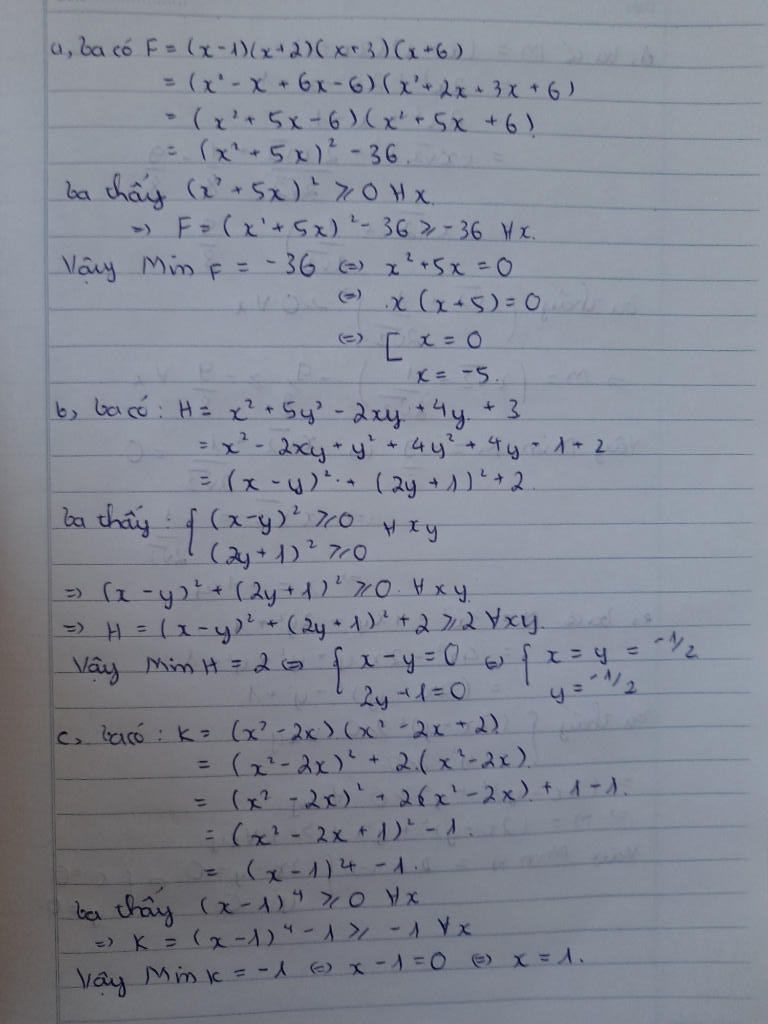 a, Ta có F = (x-1)(x+2)(x+3)(x+6)
= (x² - x + 6x - 6)(x² + 2x + 3x + 6)
= (x² + 5x - 6)(x² + 5x + 6)
= (x² + 5x)² - 36.
Ta thấy (x² + 5x)² ≥ 0 ∀x.
=> F = (x² + 5x)² - 36 ≥ -36 ∀x.
Vậy Min F = -36 <=> x² + 5x = 0
<=> x(x+5) = 0
<=> [ x = 0
x = -5.
b, Ta có: H = x² + 5y² - 2xy + 4y + 3
= x² - 2xy + y² + 4y² + 4y + 1 + 2
= (x - y)² + (2y + 1)² + 2.
Ta thấy: { (x-y)² ≥ 0 ∀xy
(2y+1)² ≥ 0
=> (x - y)² + (2y+1)² ≥ 0 ∀xy
=> H = (x-y)² + (2y+1)² + 2 ≥ 2 ∀xy.
Vậy Min H = 2 <=> { x - y = 0 <=> { x = y = -1/2
2y + 1 = 0 y = -1/2
c, Ta có: K = (x² - 2x)(x² - 2x + 2)
= (x² - 2x)² + 2.(x² - 2x)
= (x² - 2x)² + 2(x² - 2x) + 1 - 1.
= (x² - 2x + 1)² - 1.
= (x-1)4 - 1.
Ta thấy (x-1)⁴ ≥ 0 ∀x
=> K = (x-1)⁴ - 1 ≥ -1 ∀x
Vậy Min K = -1 <=> x - 1 = 0 <=> x = 1.